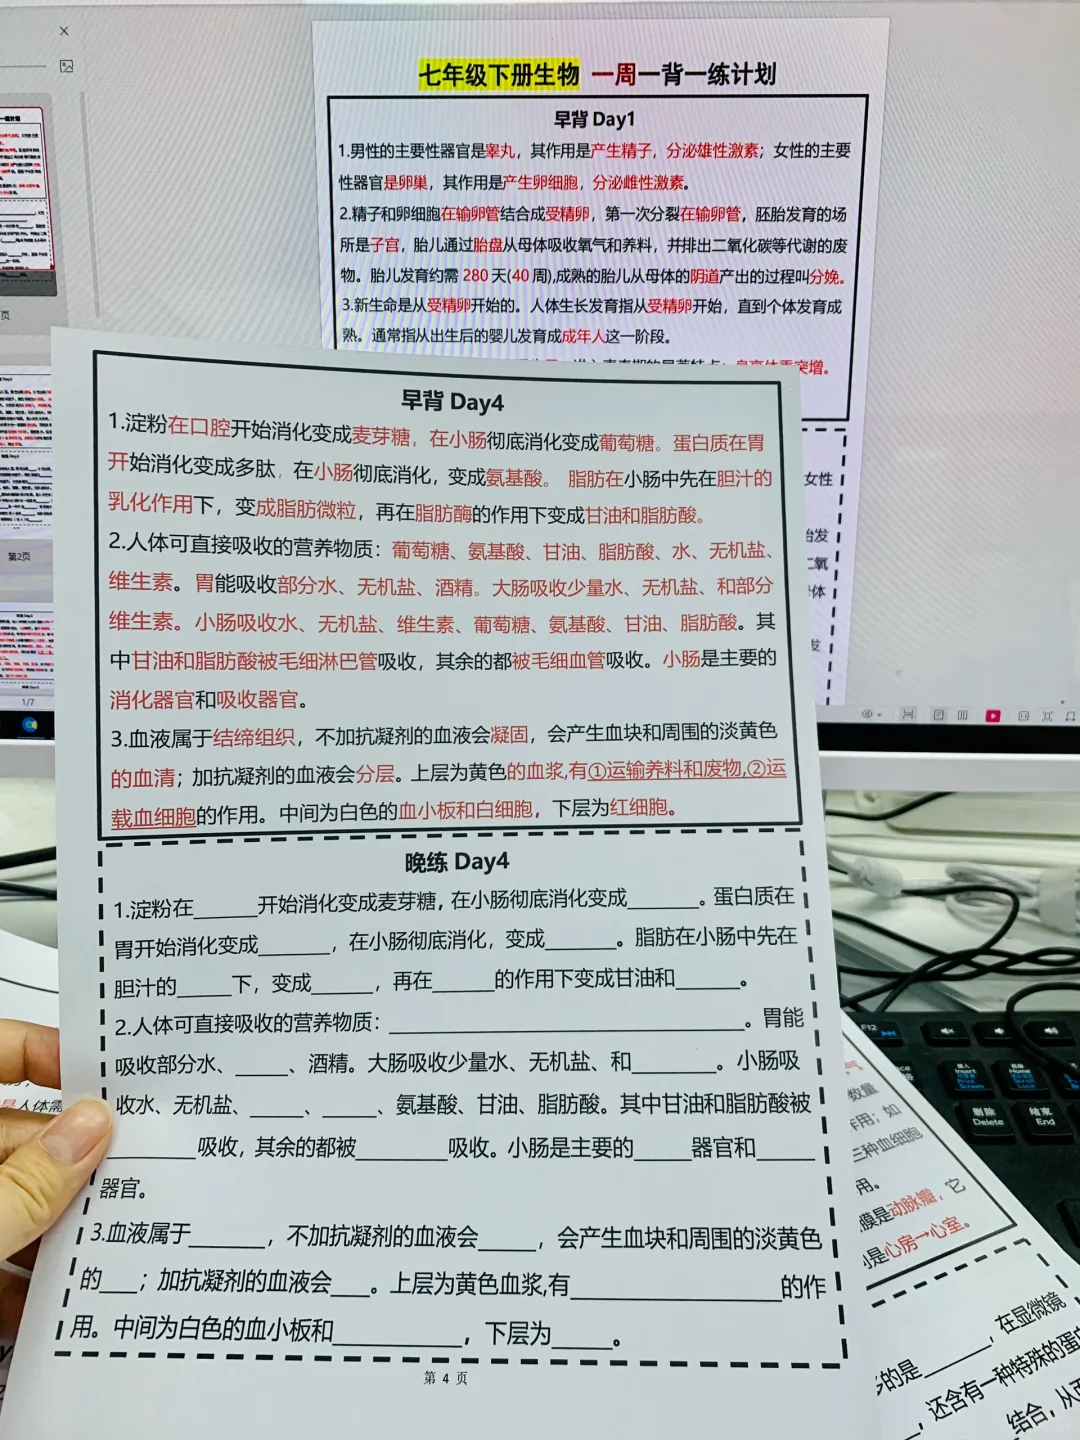 七年级下册生物 一周一背一练计划
早背 Day1
1.男性的主要性器官是睾丸，其作用是产生精子，分泌雄性激素；女性的主要
性器官是卵巢，其作用是产生卵细胞，分泌雌性激素。
2.精子和卵细胞在输卵管结合成受精卵，第一次分裂在输卵管，胚胎发育的场
所是子宫，胎儿通过胎盘从母体吸收氧气和养料，并排出二氧化碳等代谢的废
物。胎儿发育约需 280 天(40 周),成熟的胎儿从母体的阴道产出的过程叫分娩。
3.新生命是从受精卵开始的。人体生长发育指从受精卵开始，直到个体发育成
熟。通常指从出生后的婴儿发育成成年人这一阶段。
早背 Day4
1.淀粉在口腔开始消化变成麦芽糖，在小肠彻底消化变成葡萄糖。蛋白质在胃
开始消化变成多肽，在小肠彻底消化，变成氨基酸。 脂肪在小肠中先在胆汁的
乳化作用下，变成脂肪微粒，再在脂肪酶的作用下变成甘油和脂肪酸。
2.人体可直接吸收的营养物质：葡萄糖、氨基酸、甘油、脂肪酸、水、无机盐、
维生素。胃能吸收部分水、无机盐、酒精。大肠吸收少量水、无机盐、和部分
维生素。小肠吸收水、无机盐、维生素、葡萄糖、氨基酸、甘油、脂肪酸。其
中甘油和脂肪酸被毛细淋巴管吸收，其余的都被毛细血管吸收。小肠是主要的
消化器官和吸收器官。
3.血液属于结缔组织，不加抗凝剂的血液会凝固，会产生血块和周围的淡黄色
的血清；加抗凝剂的血液会分层。上层为黄色的血浆,有①运输养料和废物,②运
载血细胞的作用。中间为白色的血小板和白细胞，下层为红细胞。
晚练 Day4
1.淀粉在______开始消化变成麦芽糖，在小肠彻底消化变成_______。蛋白质在
胃开始消化变成_______，在小肠彻底消化，变成_______。脂肪在小肠中先在
胆汁的_____下，变成______，再在______的作用下变成甘油和______。
2.人体可直接吸收的营养物质：___________________________________。胃能
吸收部分水、_____、酒精。大肠吸收少量水、无机盐、和________。小肠吸
收水、无机盐、_____、_____、氨基酸、甘油、脂肪酸。其中甘油和脂肪酸被
_________吸收，其余的都被_________吸收。小肠是主要的_____器官和_____
器官。
3.血液属于_______，不加抗凝剂的血液会_____，会产生血块和周围的淡黄色
的___；加抗凝剂的血液会___。上层为黄色血浆,有___________________的作
用。中间为白色的血小板和____________，下层为_____。
第 4 页
第2页
1/7
女性
F12
Insert
Home
删除
Delete
结束
End
数量
作用；如
三种血细胞
用。
膜是动脉瓣，它
是心房→心室。
的是______，在显微镜
，还含有一种特殊的蛋白
结合，从而
人体需